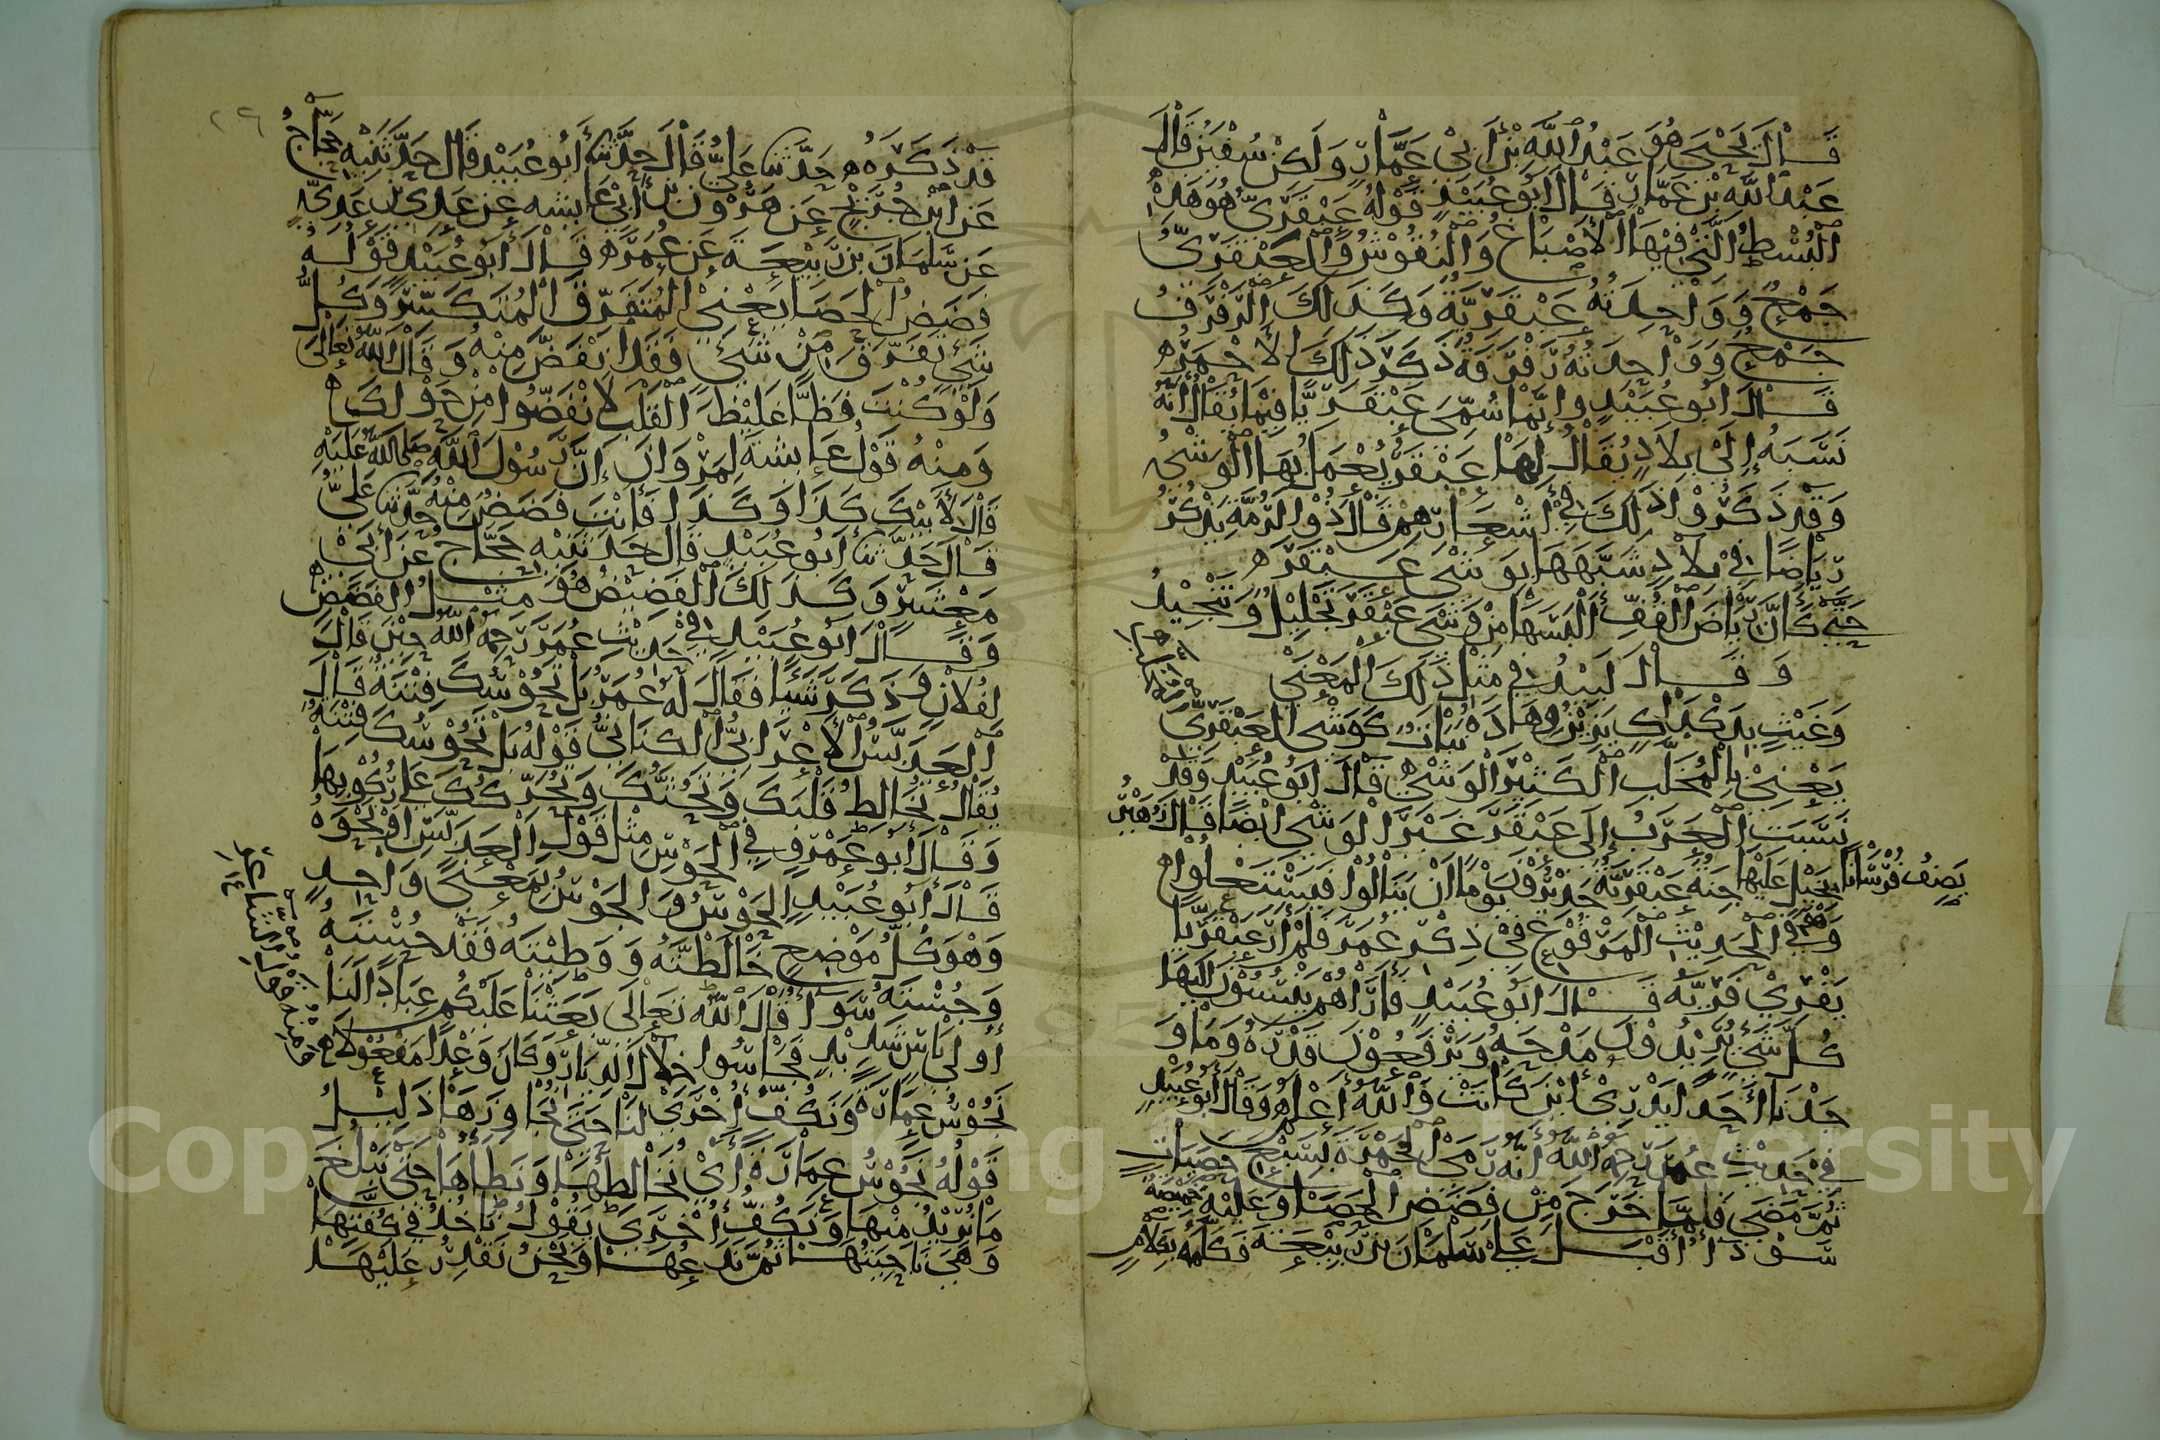 قال يحيى هو عبد الله بن أبي عمار ولكن سفين قال
عبد الله بن عمار قال أبو عبيد قوله عبقري هو هذه
البسط التي فيها الأصباغ والنقوش والعبقري
جمع وواحدته عبقرية وكذلك الرفرف
جمع وواحدته رفرفة ذكر ذلك الأحمر
قال أبو عبيد وإنما سمي عبقريا فيما يقال أنه
نسبه إلى بلاد يقال لها عبقر يعمل بها الوشي
وقد ذكروا ذلك في أشعارهم قال ذو الرمة يذكر
رياضا في بلاد شبهها بوشي عبقر
حتى كأن رياض القف ألبسها من وشي عبقر تجليل وتنجيد
وقال لبيد في مثل ذلك المعنى
وغيث بدكداك يزين وهاده نبات كوشي العبقري
المخلب
يعني بالمخلب الكثير الوشي قال أبو عبيد وقد
نسبت العرب إلى عبقر غير الوشي أيضا قال زهير
يصف فرسانا بخيل عليها جنة عبقرية جديرون يوما أن ينالوا فيستعلوا
وهي في الحديث المرفوع في ذكر عمر فلم أر عبقريا
يفري فريه قال أبو عبيد فأراهم ينسبون إليها
كل شيء يريدون مدحه ويرفعون قدره وما
وجدنا أحدا يدري أين كانت والله أعلم وقال أبو عبيد
في حديث عمر رحمه الله أنه رمى الجمرة بسبع حصيات
ثم مضى فلما خرج من فضض الحصا وعليه خميصة
سوداء أقبل على سلمان بن ربيعة فكلمه بكلام
٢٩
قد ذكره حدثنا علي قال حدثنا أبو عبيد قال حدثنيه حجاج
عن ابن جريج عن هرون بن أبي عائشه عن عدي بن عدي
عن سلمان بن ربيعة عن عمر قال أبو عبيد قوله
فضض الحصا يعني المتفرق المتكسر وكل
شيء تفرق من شيء فقد انفض منه وقال الله تعالى
ولو كنت فظا غليظ القلب لانفضوا من حولك
ومنه قول عائشة لمروان إن رسول الله صلى الله عليه
قال لأبيك كذا وكذا فأنت فضض منه حدثنا علي
قال حدثنا أبو عبيد قال حدثنيه حجاج عن أبي
معشر وكذلك الفضيض هو مثل الفضض
وقال أبو عبيد في حديث عمر رحمه الله حين قال
لفلان وذكر شيئا فقال له عمر بل تحوسك فتنة قال
العدبس الأعرابي الكناني قوله بل تحوسك فتنة
يقال تخالط قلبك وتحثك وتحركك على ركوبها
وقال أبو عمرو في الحوس مثل قول العدبس أو نحوه
قال أبو عبيد الحوس والجوس بمعنى واحد
وهو كل موضع خالطته ووطئته فقد حسته
وجسته سواء قال الله تعالى بعثنا عليكم عبادا لنا
أولي باس شديد فجاسوا خلال الديار وكان وعدا مفعولا
ومنه قول الشاعر
نحوس عمارة ونكف أخرى لنا حتى نجاوزها دليل
قوله نحوس عمارة أي نخالطها ونطأها حتى نبلغ
ما نريد منها ونكف أخرى يقول نأخذ في كفتها
وهي ناحيتها ثم ندعها ونحن نقدر عليها